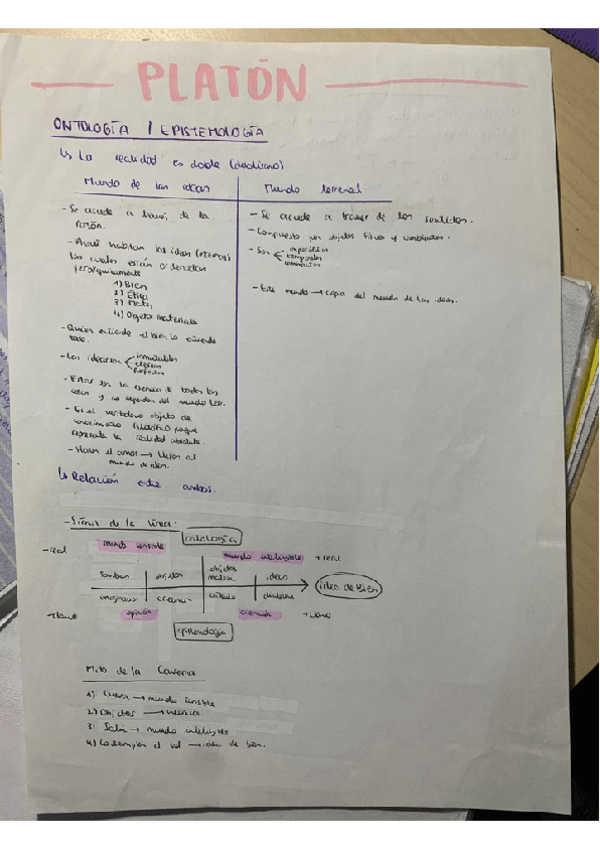 PLATÓN
ONTOLOGÍA / EPISTEMOLOGÍA
↳ La realidad es doble (dualismo)
Mundo de las ideas
- Se accede a través de la
razón.
- Aquí habitan las ideas
los cuales están ordenadas
jerárquicamente
1) Bien
2) Ética
3) Mats,
4) Objeto materiales
- Quien entiende el bien lo entiende
todo.
- Las ideas son
inmutables
eternas
perfectas
- Estas son la esencia de todas las
cosas y no dependen del mundo
- Es el verdadero objeto de
conocimiento filosófico porque
representa la realidad absoluta.
- el amor → al
mundo de ideas.
Mundo terrenal
- Se accede a traves de los sentidos.
- Compuesto por objetos físicos y cambiantes.
- Son
imperfectos
temporales
- Este mundo → copia del mundo de las ideas.
↳ Relación entre ambos.
- Símil de la línea:
ontología
- real
mundo sensible
mundo inteligible
+ real
sombras
objetos
objetos
matem.
ideas
idea de Bien
imaginación
creencia
- claro
opinión
ciencia
+ claro
epistemología
Mito de la Caverna
1) Cueva → mundo sensible
2) Objetos →
3) Salir → mundo inteligible
4) Contemplar el sol → idea de bien.